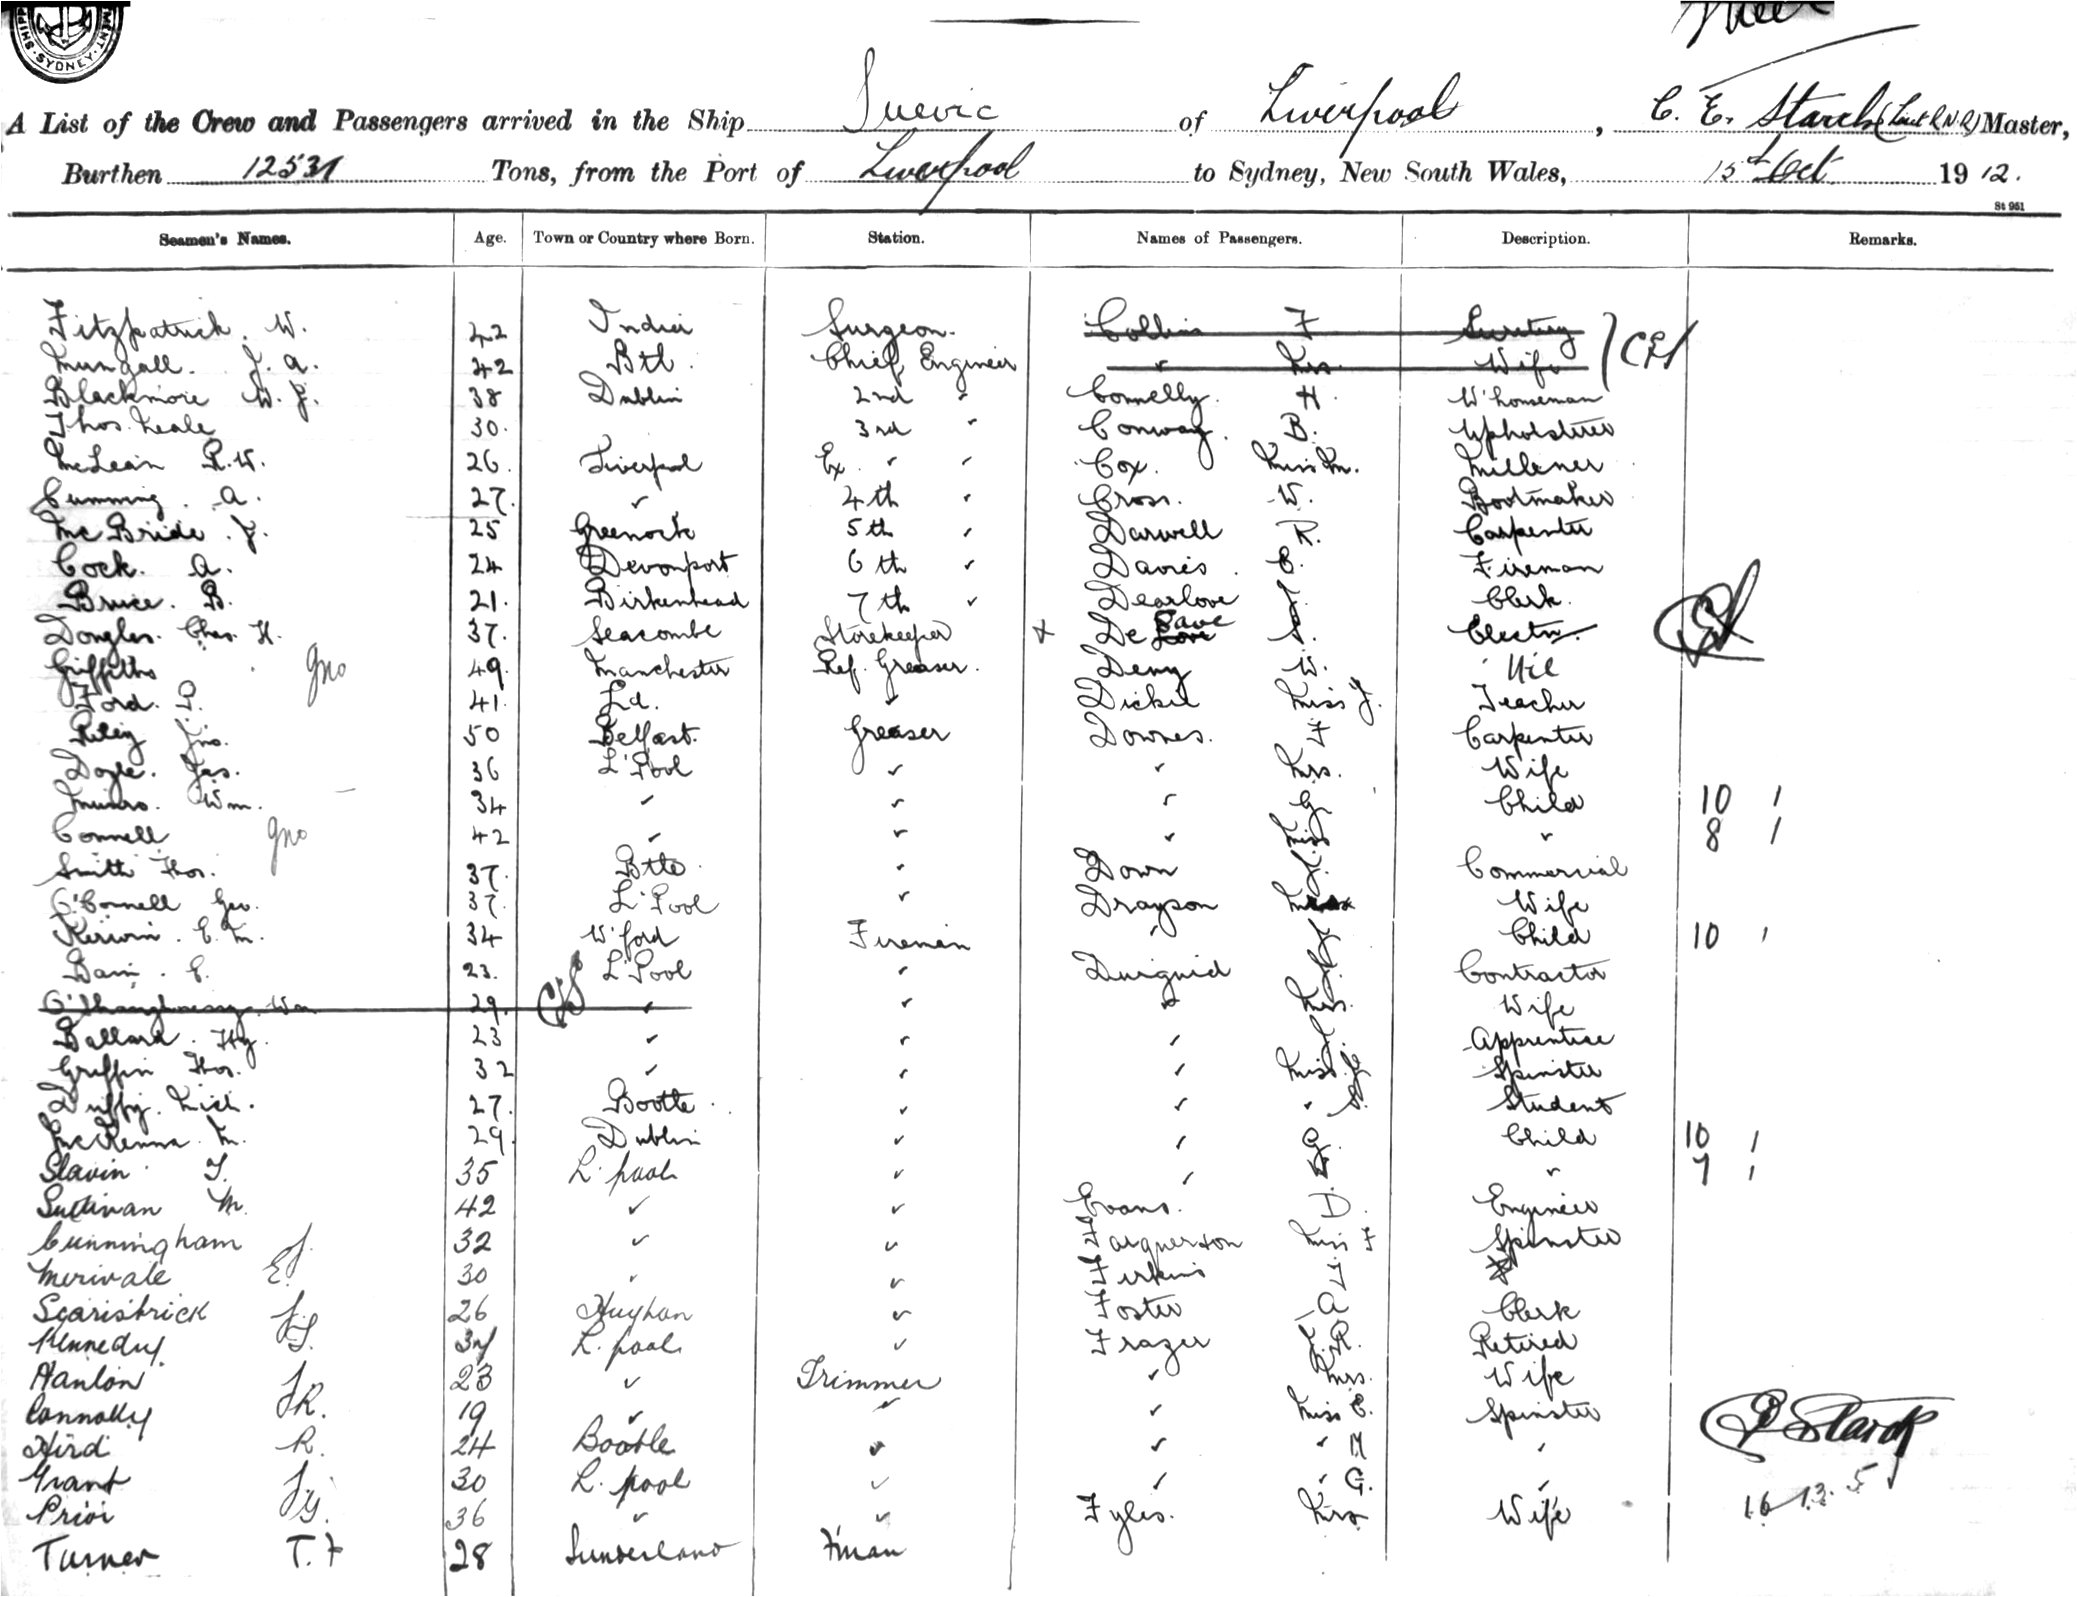 SYDNEY
A List of the Crew and Passengers arrived in the Ship Suevic of Liverpool, C. E. Starck (Lieut R N R) Master,
Burthen 12531 Tons, from the Port of Liverpool to Sydney, New South Wales, 15th Oct 1912.
St 951
Seamen's Names. Age. Town or Country where Born. Station. Names of Passengers. Description. Remarks.
Fitzpatrick. W. 42 India Surgeon. Collins F Secretary
Mungall. J. A. 42 Btl. Chief Engineer " Mrs. Wife
Blackmore W. J. 38 Dublin 2nd " Connelly. H. W'houseman
Thos. Neale 30. 3rd " Conway. B. Upholsterer
McLean R. W. 26. Liverpool Ex. " " Cox. Miss M. Millener
Cumming. A. 27. " 4th " Cross. W. Bootmaker
Mc Bride. J. 25 Greenock 5th " Darwell R. Carpenter
Cock. A. 24 Devonport 6th " Davies. E. Fireman
Bruce. B. 21. Birkenhead 7th " Dearlove J. Clerk.
Douglas. Chas. H. 37. Seacombe Storekeeper x De Save S. Electn.
Griffiths Jno 49. Manchester Ref. Greaser. Deny W. Nil
Ford. P. 41. Ld. " Dickie Miss J. Teacher
Riley Jno. 50 Belfast. Greaser Downes. F Carpenter
Doyle. Jas. 36 L'Pool " " Mrs. Wife
Munro. Wm. 34 " " " G Child 10 /
Connell Jno 42 " " " Miss " 8 /
Smith Thos. 37. Btle. " Down J. Commercial
O'Connell Geo. 37. L'Pool " Drayson Wife
Kirwin. E. M. 34 W'ford Fireman " J Child 10 /
Bain. E. 23. L'Pool " Duiguid J. Contractor
O'Shaughnessy. Wm 29. " " " Mrs. Wife
Ballard. Hy. 23 " " " J. Apprentice
Griffin Thos. 32 " " " Miss Spinster
Duffy. Mich. 27. Bootle. " " " S. Student
McKenna. M. 29. Dublin " " G. Child 10 /
Slavin J. 35 L. pool " " " 7 /
Sullivan M. 42 " " Evans. D. Engineer
Cunningham J. 32 " " Farquerson Miss F Spinster
Merivale E. 30 " " Firkins J
Scarisbrick J. 26 Huyhan " Foster A Clerk
Kennedy J. 34 L. pool " Frazer R. Retired
Hanlon J. 23 " Trimmer " Mrs. Wife
Connolly R. 19 " " " Miss E. Spinster
Hird R. 24 Bootle " " " M "
Grant J. 30 L. pool " " " G. "
Prior G. 36 " " Fyles. Mrs Wife
Turner T. F 28 Sunderland F'man
Starck
16 13. 5